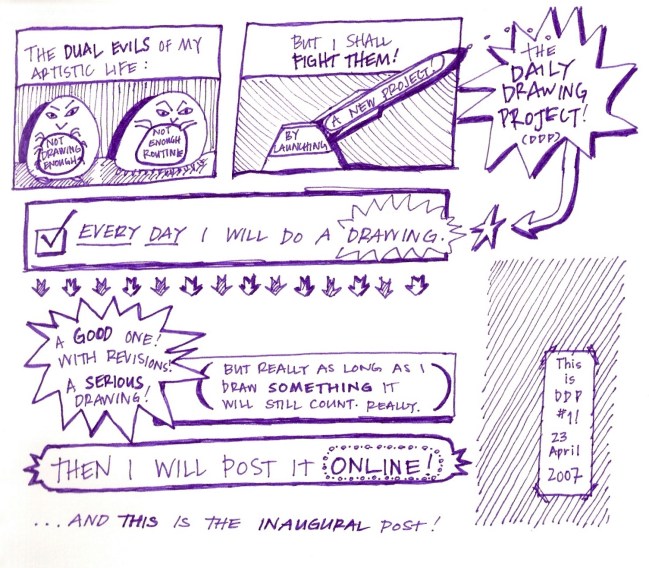 THE DUAL EVILS OF MY
ARTISTIC LIFE:
NOT
DRAWING
ENOUGH
NOT
ENOUGH
ROUTINE
BUT I SHALL
FIGHT THEM!
BY
LAUNCHING
A NEW PROJECT!
THE
DAILY
DRAWING
PROJECT!
(DDP)
EVERY DAY I WILL DO A DRAWING.
A GOOD ONE!
WITH REVISIONS!
A SERIOUS
DRAWING!
(BUT REALLY AS LONG AS I
DRAW SOMETHING IT
WILL STILL COUNT. REALLY.)
THEN I WILL POST IT ONLINE!
...AND THIS IS THE INAUGURAL POST!
This
is
DDP
#1!
23
April
2007